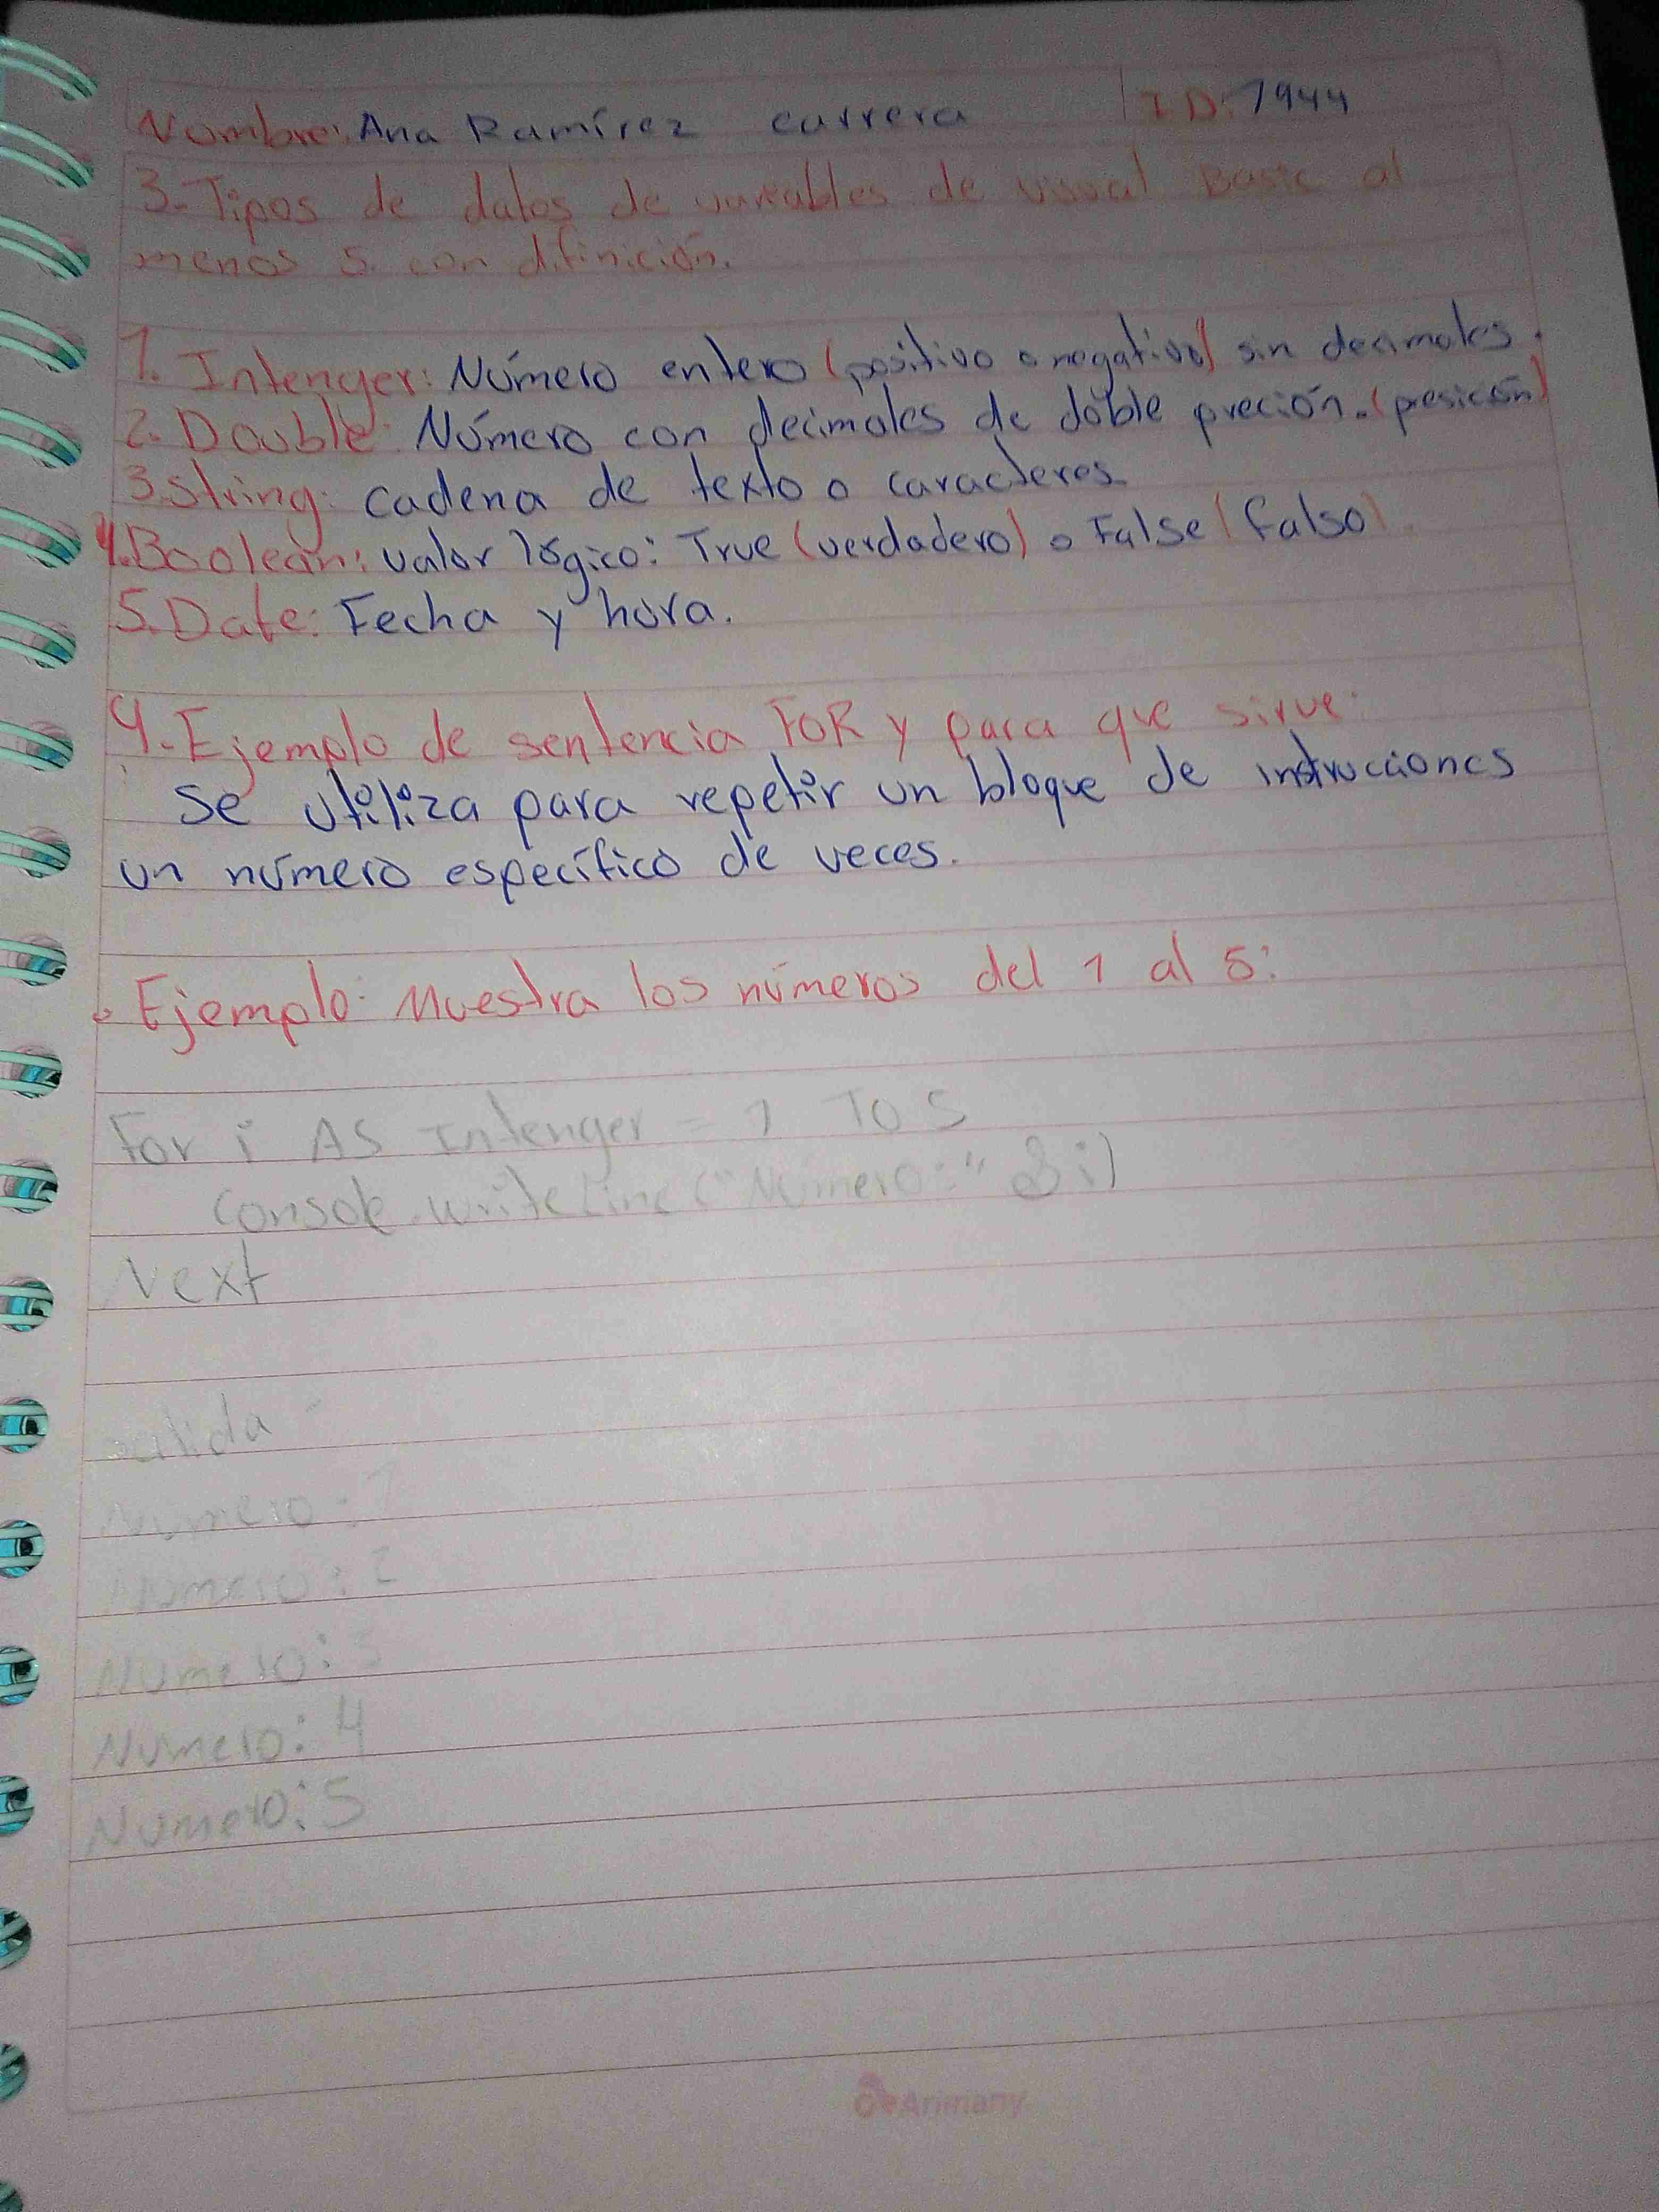 Nombre: Ana Ramírez carrera ID: 7944
3. Tipos de datos de variables de visual Basic al
menos 5. con difinición.
1. Intenger: Número entero (positivo o negativo) sin decimales.
2. Double: Número con decimales de doble preción. (presición)
3. String: cadena de texto o caracteres
4. Boolean: valor lógico: True (verdadero) o False (falso)
5. Date: Fecha y hora.
4. Ejemplo de sentencia FOR y para que sirve:
Se utiliza para repetir un bloque de instrucciones
un número específico de veces.
• Ejemplo: Muestra los números del 1 al 5:
For i AS Intenger = 1 TO 5
Console.writeLine("Número:" & i)
Next
salida
Numero: 1
Numero: 2
Numero: 3
Numero: 4
Numero: 5
Arimany